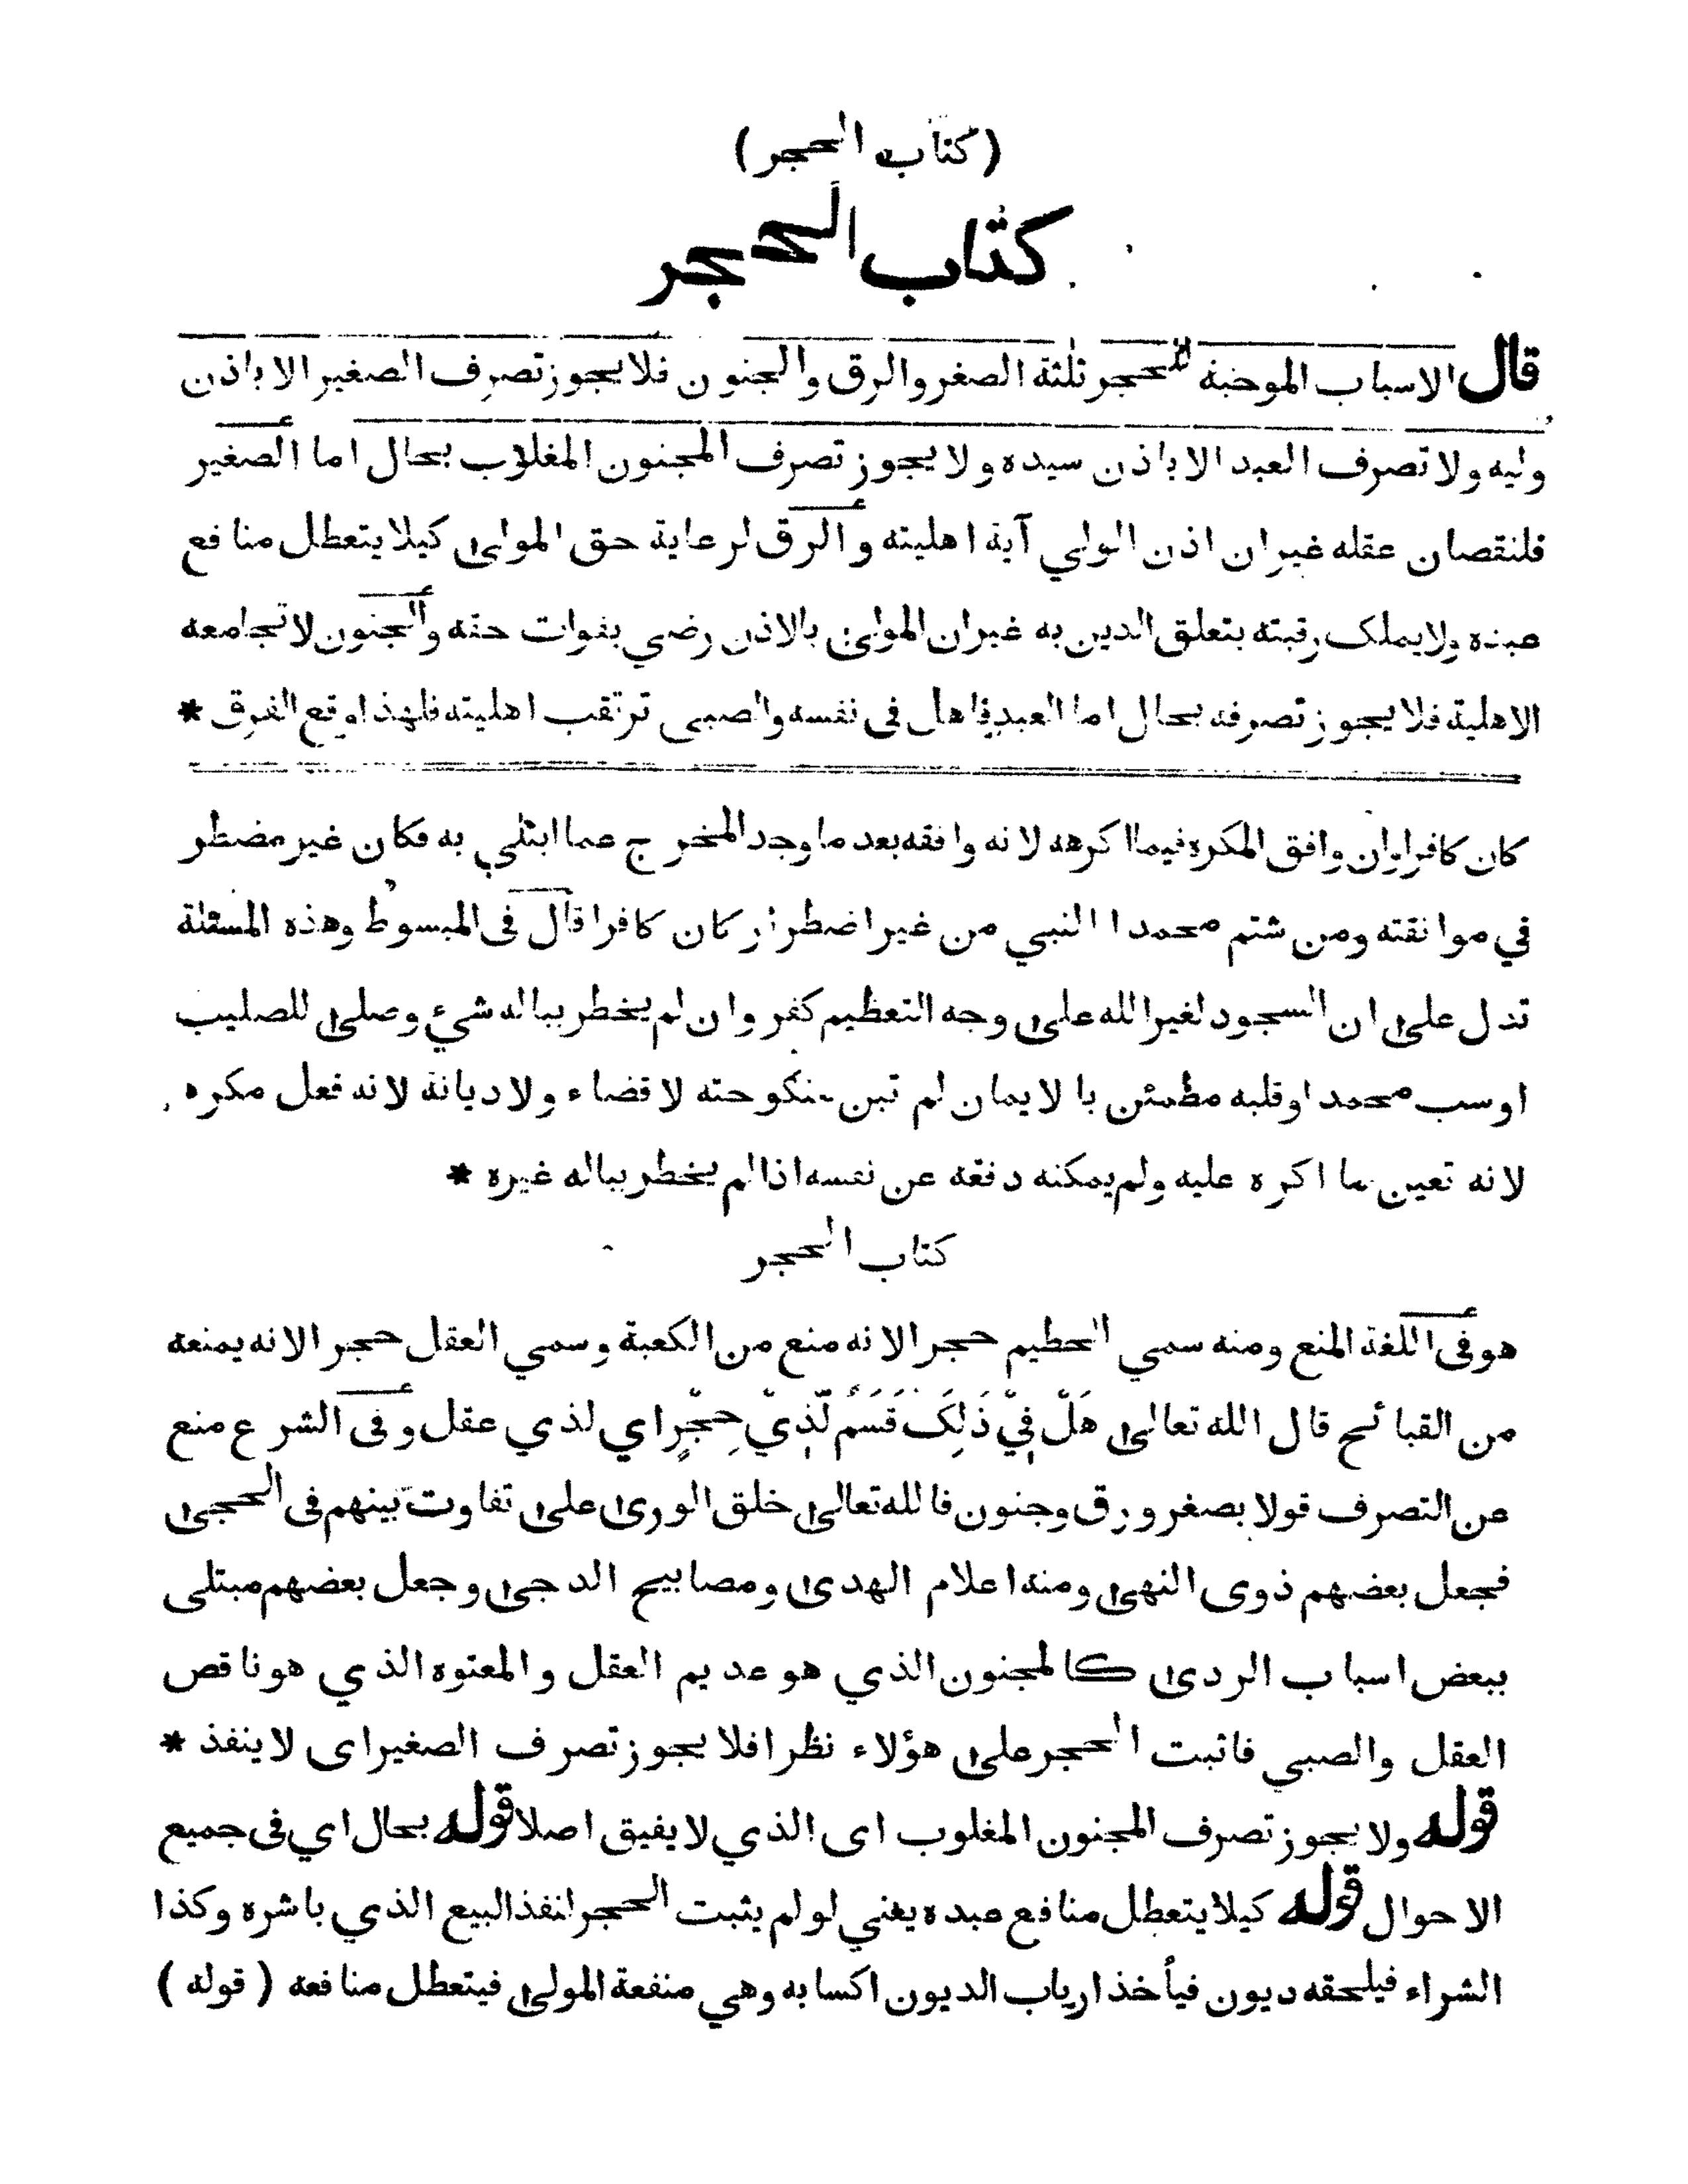 (كتاب الحجر)
كتاب الحجر
قال الاسباب الموجبة للحجر ثلثة الصغر والرق والجنون فلا يجوز تصرف الصغير الا باذن
وليه ولا تصرف العبد الا باذن سيده ولا يجوز تصرف المجنون المغلوب بحال اما الصغير
فلنقصان عقله غير ان اذن الولي آية اهليته والرق لرعاية حق المولى كيلا يتعطل منافع
عبده ولا يملك رقبته بتعلق الدين به غير ان المولى بالاذن رضي بفوات حقه والجنون لا تجامعه
الاهلية فلا يجوز تصرفه بحال اما العبد فاهل فى نفسه والصبي ترتقب اهليته فلهذا وقع الفرق *
كان كافرا وان وافق المكره فيما اكرهه لانه وافقه بعد ما وجد المخرج عما ابتلي به فكان غير مضطر
في موافقته ومن شتم محمدا النبي من غير اضطرار كان كافرا قال فى المبسوط وهذه المسئلة
تدل على ان السجود لغير الله على وجه التعظيم كفر وان لم يخطر بباله شيء وصلى للصليب
او سب محمدا وقلبه مطمئن با لايمان لم تبن منكوحته لا قضاء ولا ديانة لانه فعل مكره
لانه تعين ما اكره عليه ولم يمكنه دفعه عن نفسه اذا لم يخطر بباله غيره *
كتاب الحجر
هو فى اللغة المنع ومنه سمي الحطيم حجرا لانه منع من الكعبة وسمي العقل حجرا لانه يمنعه
من القبائح قال الله تعالى هَلْ فِيْ ذَلِكَ قَسَمٌ لِّذِيْ حِجْرٍ اي لذي عقل وفى الشرع منع
عن التصرف قولا بصغر ورق وجنون فالله تعالى خلق الورى على تفاوت بينهم فى الحجى
فجعل بعضهم ذوى النهى ومنه اعلام الهدى ومصابيح الدجى وجعل بعضهم مبتلى
ببعض اسباب الردى كالمجنون الذي هو عديم العقل والمعتوه الذي هو ناقص
العقل والصبي فاثبت الحجر على هؤلاء نظرا فلا يجوز تصرف الصغير اى لا ينفذ *
قوله ولا يجوز تصرف المجنون المغلوب اى الذي لا يفيق اصلا قوله بحال اي فى جميع
الاحوال قوله كيلا يتعطل منافع عبده يغني لو لم يثبت الحجر لنفذ البيع الذي باشره وكذا
الشراء فيلحقه ديون فيأخذ ارباب الديون اكسابه وهي منفعة المولى فيتعطل منافعه (قوله)